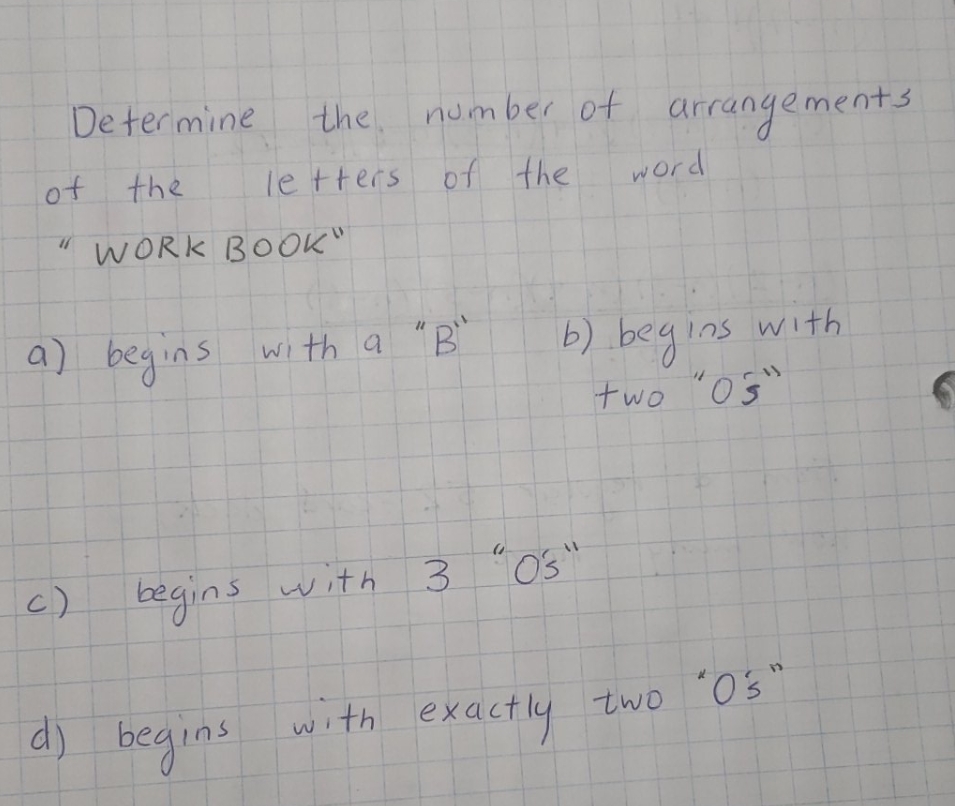 Determine the number of arrangements
of the letters of the word
"WORKBOOK"
a) begins with a "B" b) begins with
two "O's"
c) begins with 3 "O's"
d) begins with exactly two "O's"